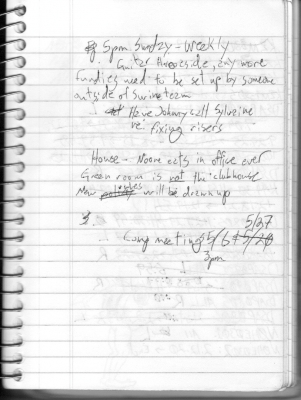 5pm Sunday - Weekly
any more
Fundies need to be set up by someone
outside of Swine team
Have Johnny call Sylvaine
re: fixing risers
House - Noone eats in office ever
Green room is not the clubhouse
New policies will be drawn up
5/27
Comp meeting 5/6 + 5/20
3pm